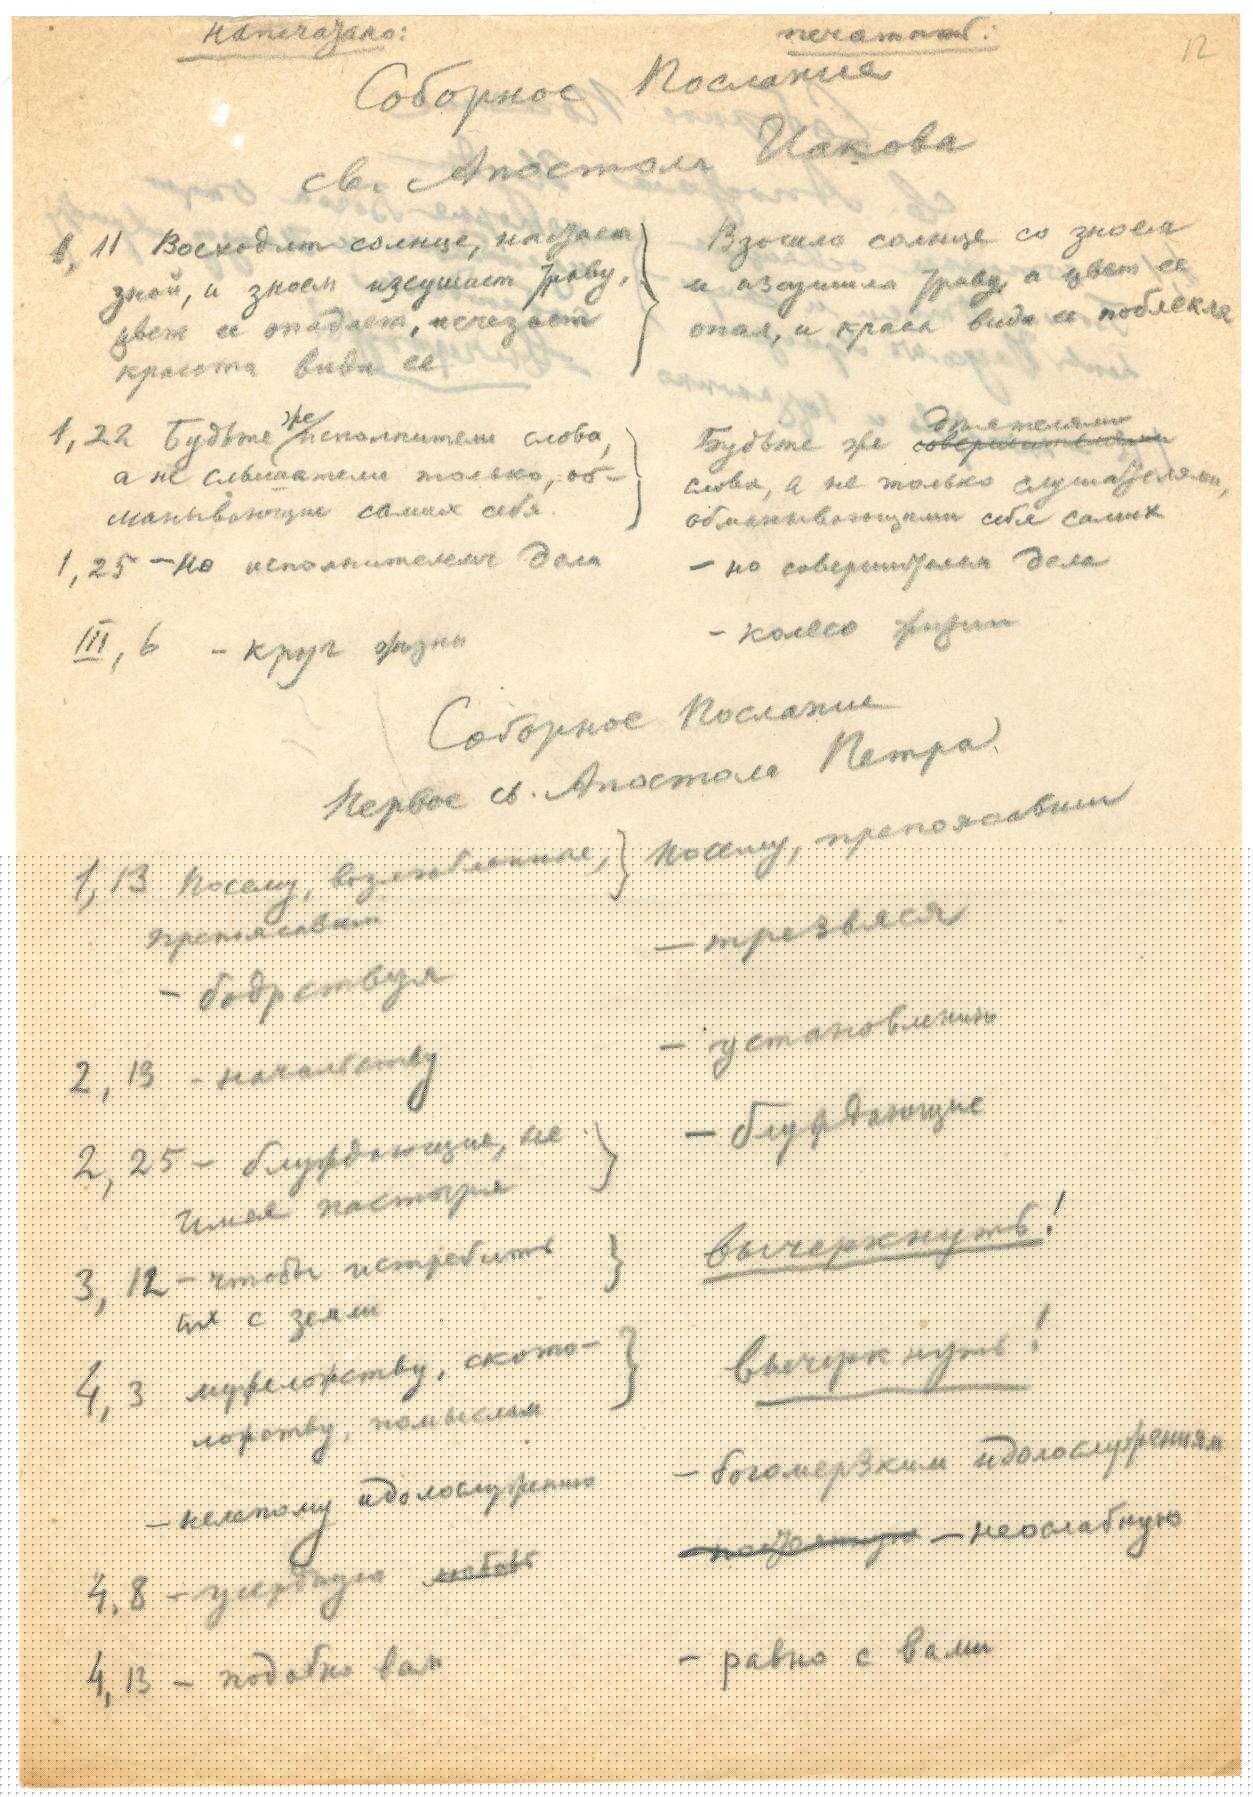 напечатано: печатать: 12
Соборное Послание
св. Апостола Иакова
1, 11 Восходит солнце, настает } Взошло солнце со зноем
зной, и зноем иссушает траву, и иссушило траву, а цвет ее
цвет ее опадает, исчезает опал, и краса вида ее поблекла
красота вида ее
1, 22 Будьте же исполнители слова, } Будьте же совершителями деятелями
а не слышатели только, об- слова, а не только слушателями,
манывающие самих себя. обманывающими себя самих
1, 25 – но исполнителем дела – но совершителем дела
III, 6 – круг жизни – колесо жизни
Соборное Послание
Первое св. Апостола Петра
1, 13 Посему, возлюбленные, } Посему, препоясавши
препоясавши
– бодрствуя – трезвясь
2, 13 – начальству – установлению
2, 25 – блуждающие, не } – блуждающие
имея пастыря
3, 12 – чтобы истребить } вычеркнуть!
их с земли
4, 3 мужеложству, ското- } вычеркнуть!
ложству, помыслам
– нелепому идолослужению – богомерзким идолослужениям
4, 8 – усердную любовь – неослабную
4, 13 – подобно вам – равно с вами